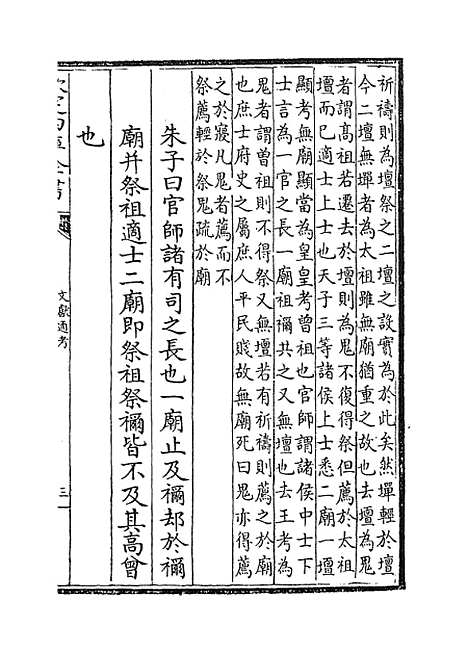 祈禱則為壇祭之二壇之設實為於此矣然墠輕於壇
今二壇無墠者為太祖雖無廟猶重之故也去壇為鬼
者謂髙祖若遷去於壇則為鬼不復得祭但薦於太祖
壇而已適士上士也天子三等諸侯上士悉二廟一壇
顯考無廟顯當為皇皇考曾祖也官師謂諸侯中士下
士言為一官之長一廟祖禰共之又無壇也去王考為
鬼者謂曽祖則不得祭又無壇若有祈禱則薦之於廟
也庶士府史之屬庶人平民賤故無廟死曰鬼亦得薦
之於寢凡鬼者薦而不
祭薦輕於祭鬼疏於廟
朱子曰官師諸有司之長也一廟止及禰却於禰
廟并祭祖適士二廟即祭祖祭禰皆不及其高曾
也
文獻通考
三